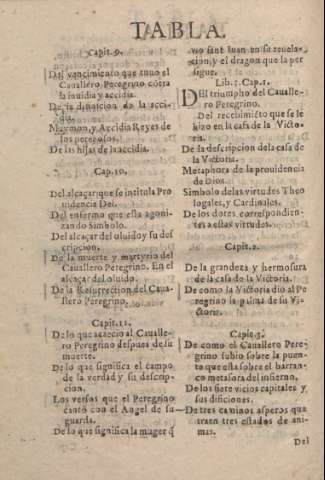 TABLA.
Capit. 9.
Del vencimiento que tuuo el
Cauallero Peregrino cõtra
la inuidia y accidia.
De la difinicion de la acci-
dia.
Maymon, y Accidia Reyes de
los perezosos.
De las hijas de la accidia.
Cap. 10.
Del alcaçar que se intitula Pro
uidencia Dei.
Del enfermo que esta agoni-
zando Simbolo.
Del alcaçar del oluido y su des
cripcion.
De la muerte y martyrio del
Cauallero Peregrino. En el
alcaçar del oluido.
De la Resurrection del Caua-
llero Peregrino.
Capit. 11.
De lo que acaecio al Caualle-
ro Peregrino despues de su
muerte.
De lo que significa el campo
de la verdad y su descrip-
cion.
Los versos que el Peregrino
canto con el Angel de su
guarda.
De lo que significa la muger q̃
uio sant Iuan en su reuela-
cion, y el dragon que la per
sigue.
Lib. . Cap. 1.
DEl triumpho del Caualle-
ro Peregrino.
Del recebimiẽto que se le
hizo en la casa de la Victo-
ria.
De la descripcion dela casa de
la Victoria.
Metaphora de la prouidencia
de Dios.
Simbolo de las virtudes Theo
logales, y Cardinales.
De los dotes correspondien-
tes a estas virtudes.
Capit. 2.
De la grandeza y hermosura
de la casa de la Victoria.
De como la Victoria dio al Pe
regrino la palma de su Vic-
toria.
Capit. 3.
De como el Cauallero Pere-
grino subio sobre la puen-
te que esta sobre el barran-
co metafora del infierno.
De los siete vicios capitales y
sus difiniciones.
De tres caminos asperos que
traen tres estados de ani-
mas.
Del